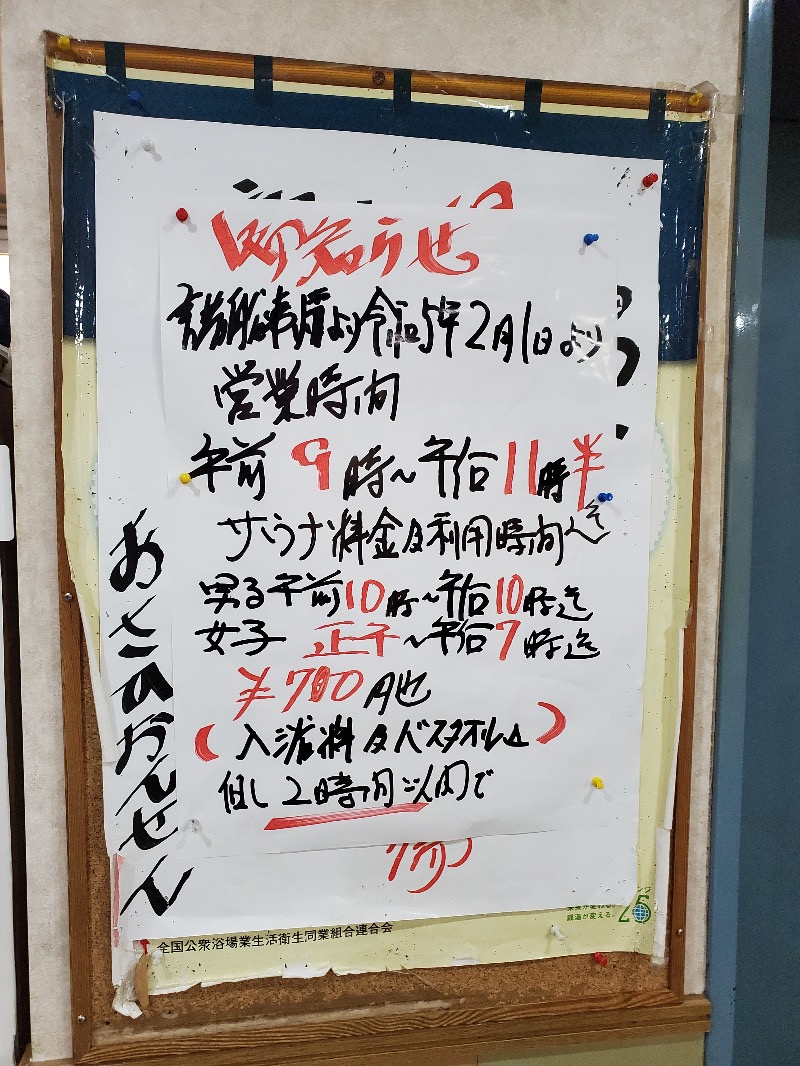 お知らせ
より令和5年2月1日より
営業時間
午前9時〜午后11時半
サウナ料金及利用時間
男子午前10時〜午后10時迄
女子 正午〜午后7時迄
¥700円也
(入浴料及バスタオル
但し2時間以内で
あさひおんせん
銭湯が変える。
25
全国公衆浴場業生活衛生同業組合連合会